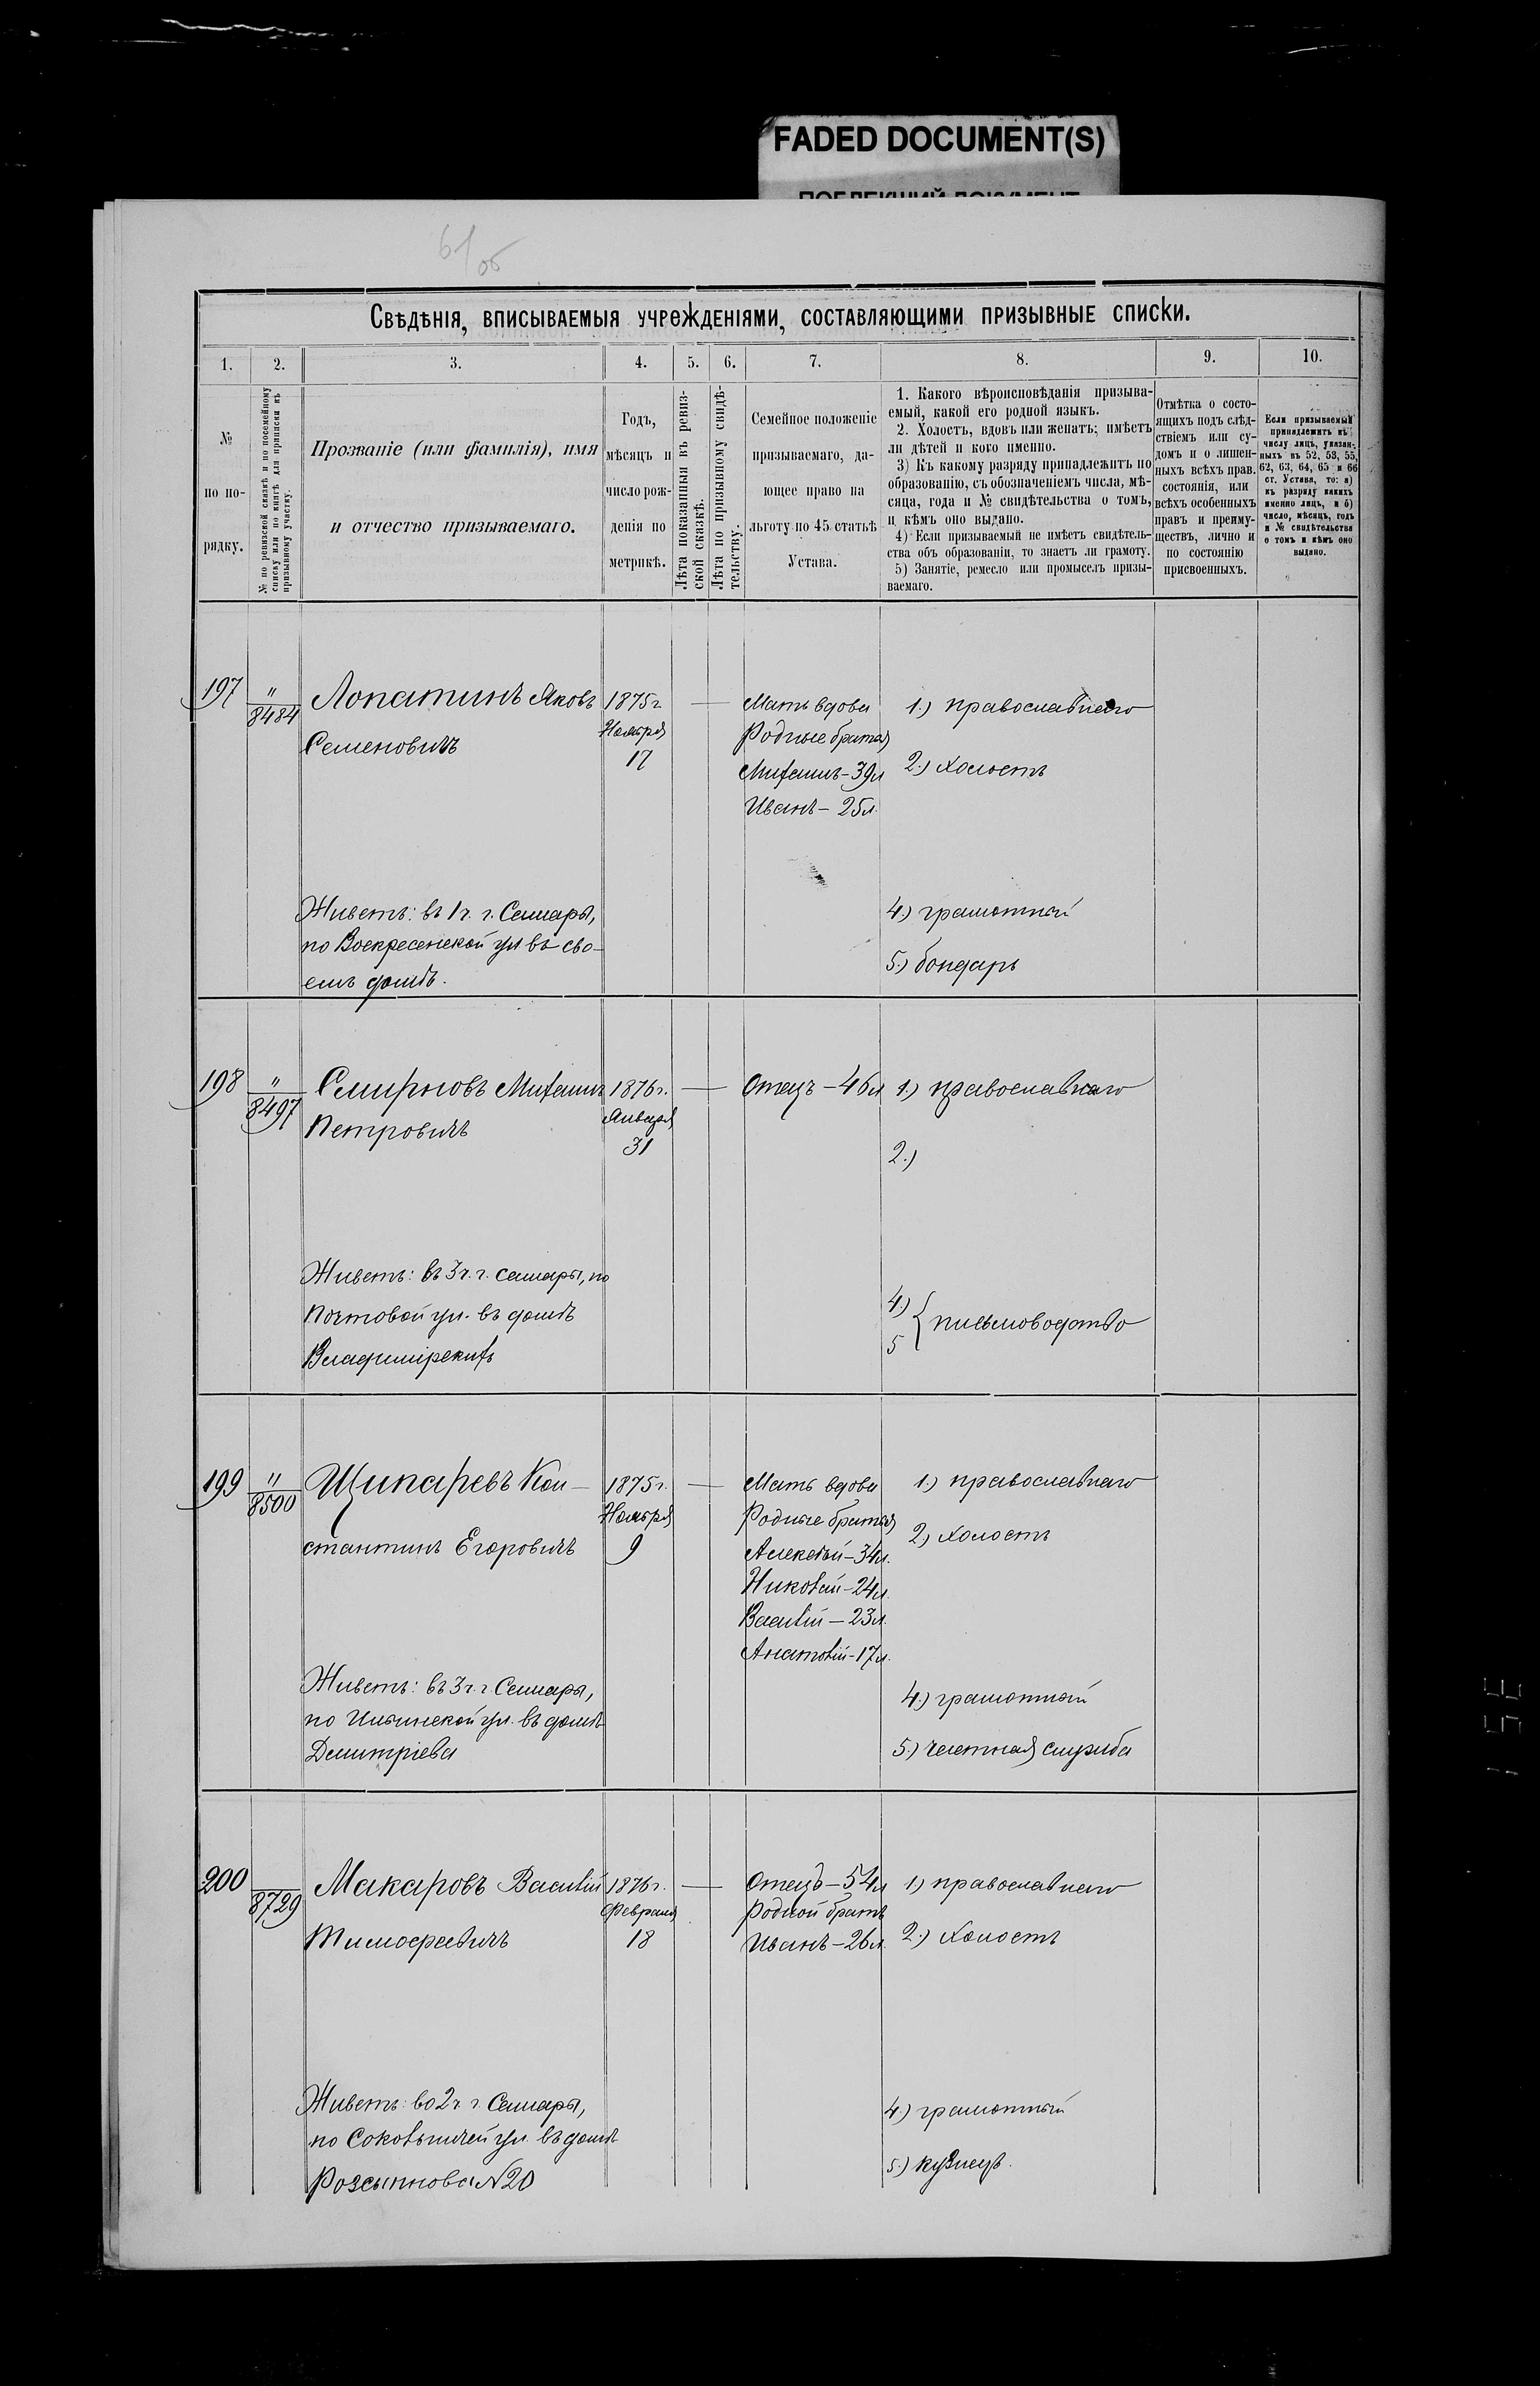 FADED DOCUMENT(S)
Свѣдѣнія, вписываемыя учрежденіями, составляющими призывные списки.
1. 2. 3. 4. 5. 6. 7. 8. 9. 10.
№
по по-
рядку.
№ по ревизской сказкѣ и по посемейному
списку или по книгѣ для приписки къ
призывному участку.
Прозваніе (или фамилія), имя
и отчество призываемаго.
Годъ,
мѣсяцъ и
число рож-
денія по
метрикѣ.
Лѣта показанныя въ ревиз-
ской сказкѣ.
Лѣта по призывному свидѣ-
тельству.
Семейное положеніе
призываемаго, да-
ющее право на
льготу по 45 статьѣ
Устава.
1. Какого вѣроисповѣданія призыва-
емый, какой его родной языкъ.
2. Холостъ, вдовъ или женатъ; имѣетъ
ли дѣтей и кого именно.
3) Къ какому разряду принадлежитъ по
образованію, съ обозначеніемъ числа, мѣ-
сяца, года и № свидѣтельства о томъ,
и кѣмъ оно выдано.
4) Если призываемый не имѣетъ свидѣтель-
ства объ образованіи, то знаетъ ли грамоту.
5) Занятіе, ремесло или промыселъ призы-
ваемаго.
Отмѣтка о состо-
ящихъ подъ слѣд-
ствіемъ или су-
домъ и о лишен-
ныхъ всѣхъ прав.
состоянія, или
всѣхъ особенныхъ
правъ и преиму-
ществъ, лично и
по состоянію
присвоенныхъ.
Если призываемый
принадлежитъ къ
числу лицъ, указан-
ныхъ въ 52, 53, 55,
62, 63, 64, 65 и 66
ст. Устава, то: а)
къ разряду какихъ
именно лицъ, и б)
число, мѣсяцъ, годъ
и № свидѣтельства
о томъ и кѣмъ оно
выдано.
197
"
8484
Лопатинъ Яковъ
Семеновичъ
Живетъ: въ 1 ч. г. Самары,
по Воскресенской ул въ сво-
емъ домѣ.
1875 г
Ноября
17
Мать вдова
Родные братья
Михаилъ - 39 л
Иванъ - 25 л.
1.) православнаго
2.) холостъ
4.) грамотный
5.) бондарь
198
"
8497
Смирновъ Михаилъ
Петровичъ
Живетъ: въ 3 ч. г. Самары, по
Почтовой ул. въ домѣ
Владимірскихъ
1876 г.
Января
31
Отецъ - 46 л
1.) православнаго
2.)
4.)
5
письмоводство
199
"
8500
Щипаревъ Кон-
стантинъ Егоровичъ
Живетъ: въ 3 ч. г. Самары,
по Ильинской ул. въ домѣ
Дмитріева
1875 г.
Ноября
9
Мать вдова
Родные братья
Алексѣй - 34 л.
Николай - 24 л.
Василій - 23 л.
Анатолій - 17 л.
1.) православнаго
2.) холостъ
4.) грамотный
5.) частная служба
200
8729
Макаровъ Василій
Тимофеевичъ
Живетъ: во 2 ч. г. Самары,
по Сокольничей ул. въ домѣ
№ 20
1876 г.
Февраля
18
Отецъ - 54 л
Родной братъ
Иванъ - 26 л.
1) православнаго
2.) холостъ
4.) грамотный
5.) кузнецъ.